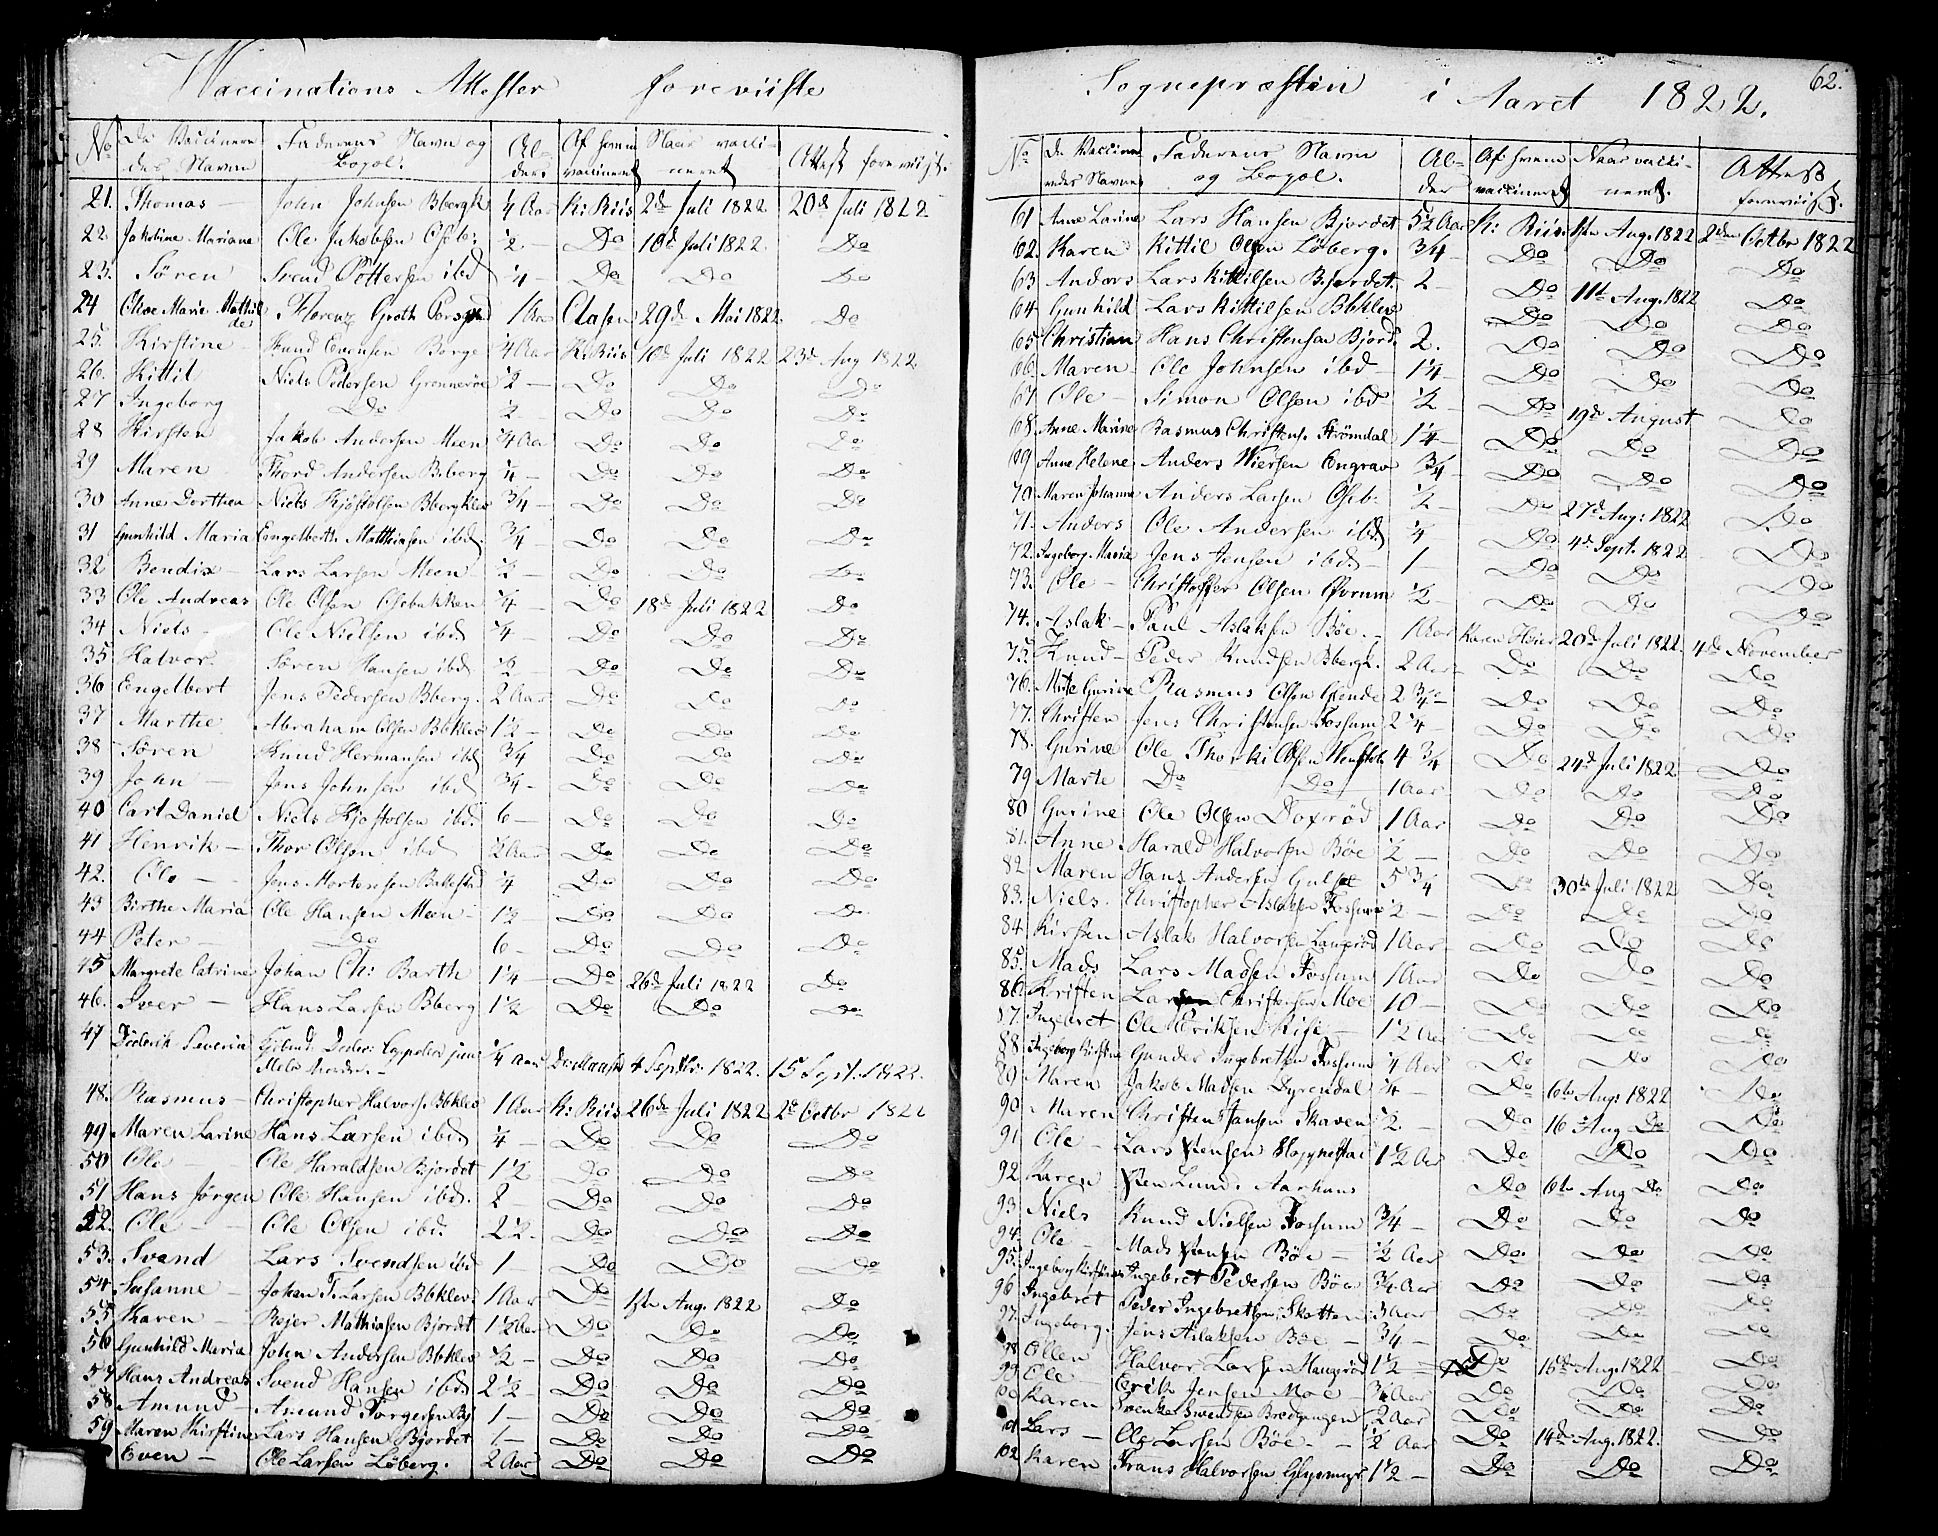 Vaccinations Attester foreviiste
No De Vaccinere des Navne Faderens Navn og Bopæl. Alder. Af hvem vaccineret Naar vaccineret Attest foreviist.
21. Thomas — John Johnsen Bbergk 1/4 Aar K: Riis 2d Juli 1822 20d Juli 1822
22. Jakobine Mariane Ole Jakobsen Oseb: 1/2 — Do 10d Juli 1822. Do
23. Sören Svend Pottersen ibd 1/4 — Do Do Do
24 Olave Marie Mathilde Florenz Groth 1 Aar Clasen 29d Mai 1822. Do
25. Kirstine Knud Evensen Borge 4 Aar K: Riis 10d Juli 1822 23d Aug 1822.
26. Kittil Niels Pedersen Grönneröe 1/2 — Do Do Do
27 Ingeborg Do 1/2 — Do Do Do
28 Kirsten Jakob Andersen Meen 3/4 Aar Do Do Do
29 Maren Thord Andersen Bberg 1/4 — Do Do Do
30 Anne Dorthea Niels Kjöstolsen Bbergklev 3/4 — Do Do Do
31 Gunhild Maria Engelbert Matthiasen ibd. 3/4 — Do Do Do
32 Bendix — Lars Larsen Meen 1/2 — Do Do Do
33 Ole Andreas Ole Olsen Osebakken 1/4 — Do 18d Juli 1822 Do
34 Niels — Ole Nielsen ibd 1/4 — Do Do Do
35 Halvor. Sören Hansen ibd 1/2 — Do Do Do
36 Engelbert Jens Pedersen Bberg. 2 Aar Do Do Do
37 Marthe Abraham Olsen Bbklev 1 1/2 — Do Do Do
38 Sören Knud Hermansen ibd 3/4 Do Do Do
39 John — Jens Johnsen ibd 3/4 — Do Do Do
40 Carl Daniel Niels Kjöstolsen ibd. 6 — Do Do Do
41 Henrik — Thor Olsen ibd 1/2 Aar Do Do Do
42. Ole — Jens Mortensen Ballestad 1/4 Do Do Do
43 Birthe Maria Ole Hansen Meen 1 1/2 — Do Do Do
44 Peter — Do 6 — Do Do Do
45 Margrete Catrine Johan Ch: Barth 1 1/4 — Do 26d Juli 1822 Do
46. Iver — Hans Larsen Bberg 1 1/2 Do Do Do
47 Severin 1/4 Aar 4 Septbr 1822. 15 Sept. 1822.
48. Rasmus — Christopher Halvors. Bbklev 1 Aar K: Riis 26de Juli 1822 2d Octbr 1822
49 Maren Larine Hans Larsen ibd. 1/4 — Do Do Do
50 Ole — Ole Haraldsen Bjordet 1 1/2 Do Do Do
51 Hans Jörgen Ole Hansen ibd. 2 Do Do Do
52. Ole — Ole Olsen ibd. 2 1/2. Do Do Do
53. Svend Lars Svendsen ibd 1 — Do Do Do
54 Susanne — Johan T. Larsen Bbklev. 1 Aar Do 1ste Aug. 1822 Do
55 Karen — Rejer Mathiasen Bjordet 1 1/2 Aar Do Do Do
56 Gunhild Maria John Andersen Bbklev 1/2 — Do Do Do
57 Hans Andreas Svend Hansen ibd 2 1/2 — Do Do Do
58 Amund — Amund Torgersen Bj 1 — Do Do Do
59 Maren Kirstine Lars Hansen Bjordet 1 — Do Do Do
Even — Ole Larsen Löberg. 2 Aar Do Do Do
62.
Sognepræsten i Aaret 1822.
No De Vaccineredes Navne Faderens Navn og Bopæl. Alder Af hvem vaccineret Naar vaccineret. Attest foreviist.
61 Anne Larine Lars Hansen Bjordet 5 1/2 Aar K: Riis 1ste Aug. 1822 2den Octbr 1822
62. Karen Kittil Olsen Löberg. 3/4 — Do Do Do
63 Anders Lars Kittilsen Bjordet. 2 — Do 11te Aug. 1822 Do
64 Gunhild Lars Kittilsen Bbklev Do Do Do
65 Christian Hans Christensen Bjord. 2. Do Do Do
66 Maren — Ole Johnsen ibd 1 1/4 — Do Do Do
67 Ole — Simon Olsen ibd 1/2 — Do 19de August Do
68 Anne Marine Rasmus Christens. Strömdal 1 1/4 — Do Do Do
69 Anne Helene Anders Wiersen Engrav 3/4 — Do Do Do
70 Maren Johanne Anders Larsen Oseb. 1/2 — Do 27d Aug: 1822 Do
71. Anders Ole Andersen ibd. 1/4 — Do 4d Sept. 1822 Do
72. Ingeborg Maria Jens Jensen ibd. 1 Do Do Do
73. Ole — Christoffer Olsen Övrum 1/2 Do Do Do
74. Aslak — Paul Aslaksen Böe. — 1 Aar Karen Hvier 20de Juli 1822. 4de November
75. Knud — Peder Knudsen Bbergk. 2 Aar Do Do Do
76. Mete Gurine Rasmus Olsen Gjende 2 3/4 — Do Do Do
77. Christen Jens Christensen Fossum 2 1/4 Do Do Do
78. Gurine Ole Thorkilsen 4 3/4 Do 24d Juli 1822 Do
79 Marte Do Do 1 Aar Do Do Do
80 Gurine Ole Olsen Doxröd 1 Aar Do Do Do
81. Anne Harald Halvorsen Böe 1/2 — Do Do Do
82 Maren Hans Andersen Gulset 5 3/4 Do 30te Juli 1822 Do
83. Niels. Christopher Aslaksen Fossum 1/2 — Do Do Do
84 Kirsten Aslak Halvorsen Langröd 1 Aar Do Do Do
85. Mads Lars Madsen Fossum 1 Aar Do Do Do
86. Kristen Lars Christensen Moe 10 — Do Do Do
87. Ingebret Ole Eriksen Rise — 1 1/2 Aar Do Do Do
88. Ingeborg Kirstine Gunder Ingebretsen Fossum 1/4 Aar Do Do Do
89 Maren Jakob Madsen Dyrendal 1/4 — Do 6te Aug: 1822 Do
90 Maren Christen Jansen Skaven 1/2 — Do 16 Aug Do Do
91 Ole — Lars Iversen 1 1/2 Aar Do Do Do
92 Karen Iver Lund. Aarhuus Do 6te Aug Do Do
93 Niels Knud Nielsen Fossum 3/4 — Do Do Do
94. Ole Mads Böe — 1/2 Aar Do Do Do
95. Ingeborg Kirstine Ingebret Pedersen Böe 3/4 Aar Do Do Do
96 Ingebret Peder Ingebretsen Skotten 3 Aar Do Do Do
97. Ingeborg. Jens Aslaksen Böe — 3/4 — Do Do Do
98 Ellen Halvor Larsen Haugeröd 1 1/2 Do 16de Aug. 1822 Do
99. Ole Erik Jensen Moe — 3/4 Aar Do Do Do
100 Karen Svenke Svendsen Bredgangen 1/2 Aar Do Do Do
101 Lars — Ole Larsen Böe — 1/2 Aar Do 14de Aug. 1822. Do
102 Karen Frans Halvorsen 1 1/2 — Do Do Do